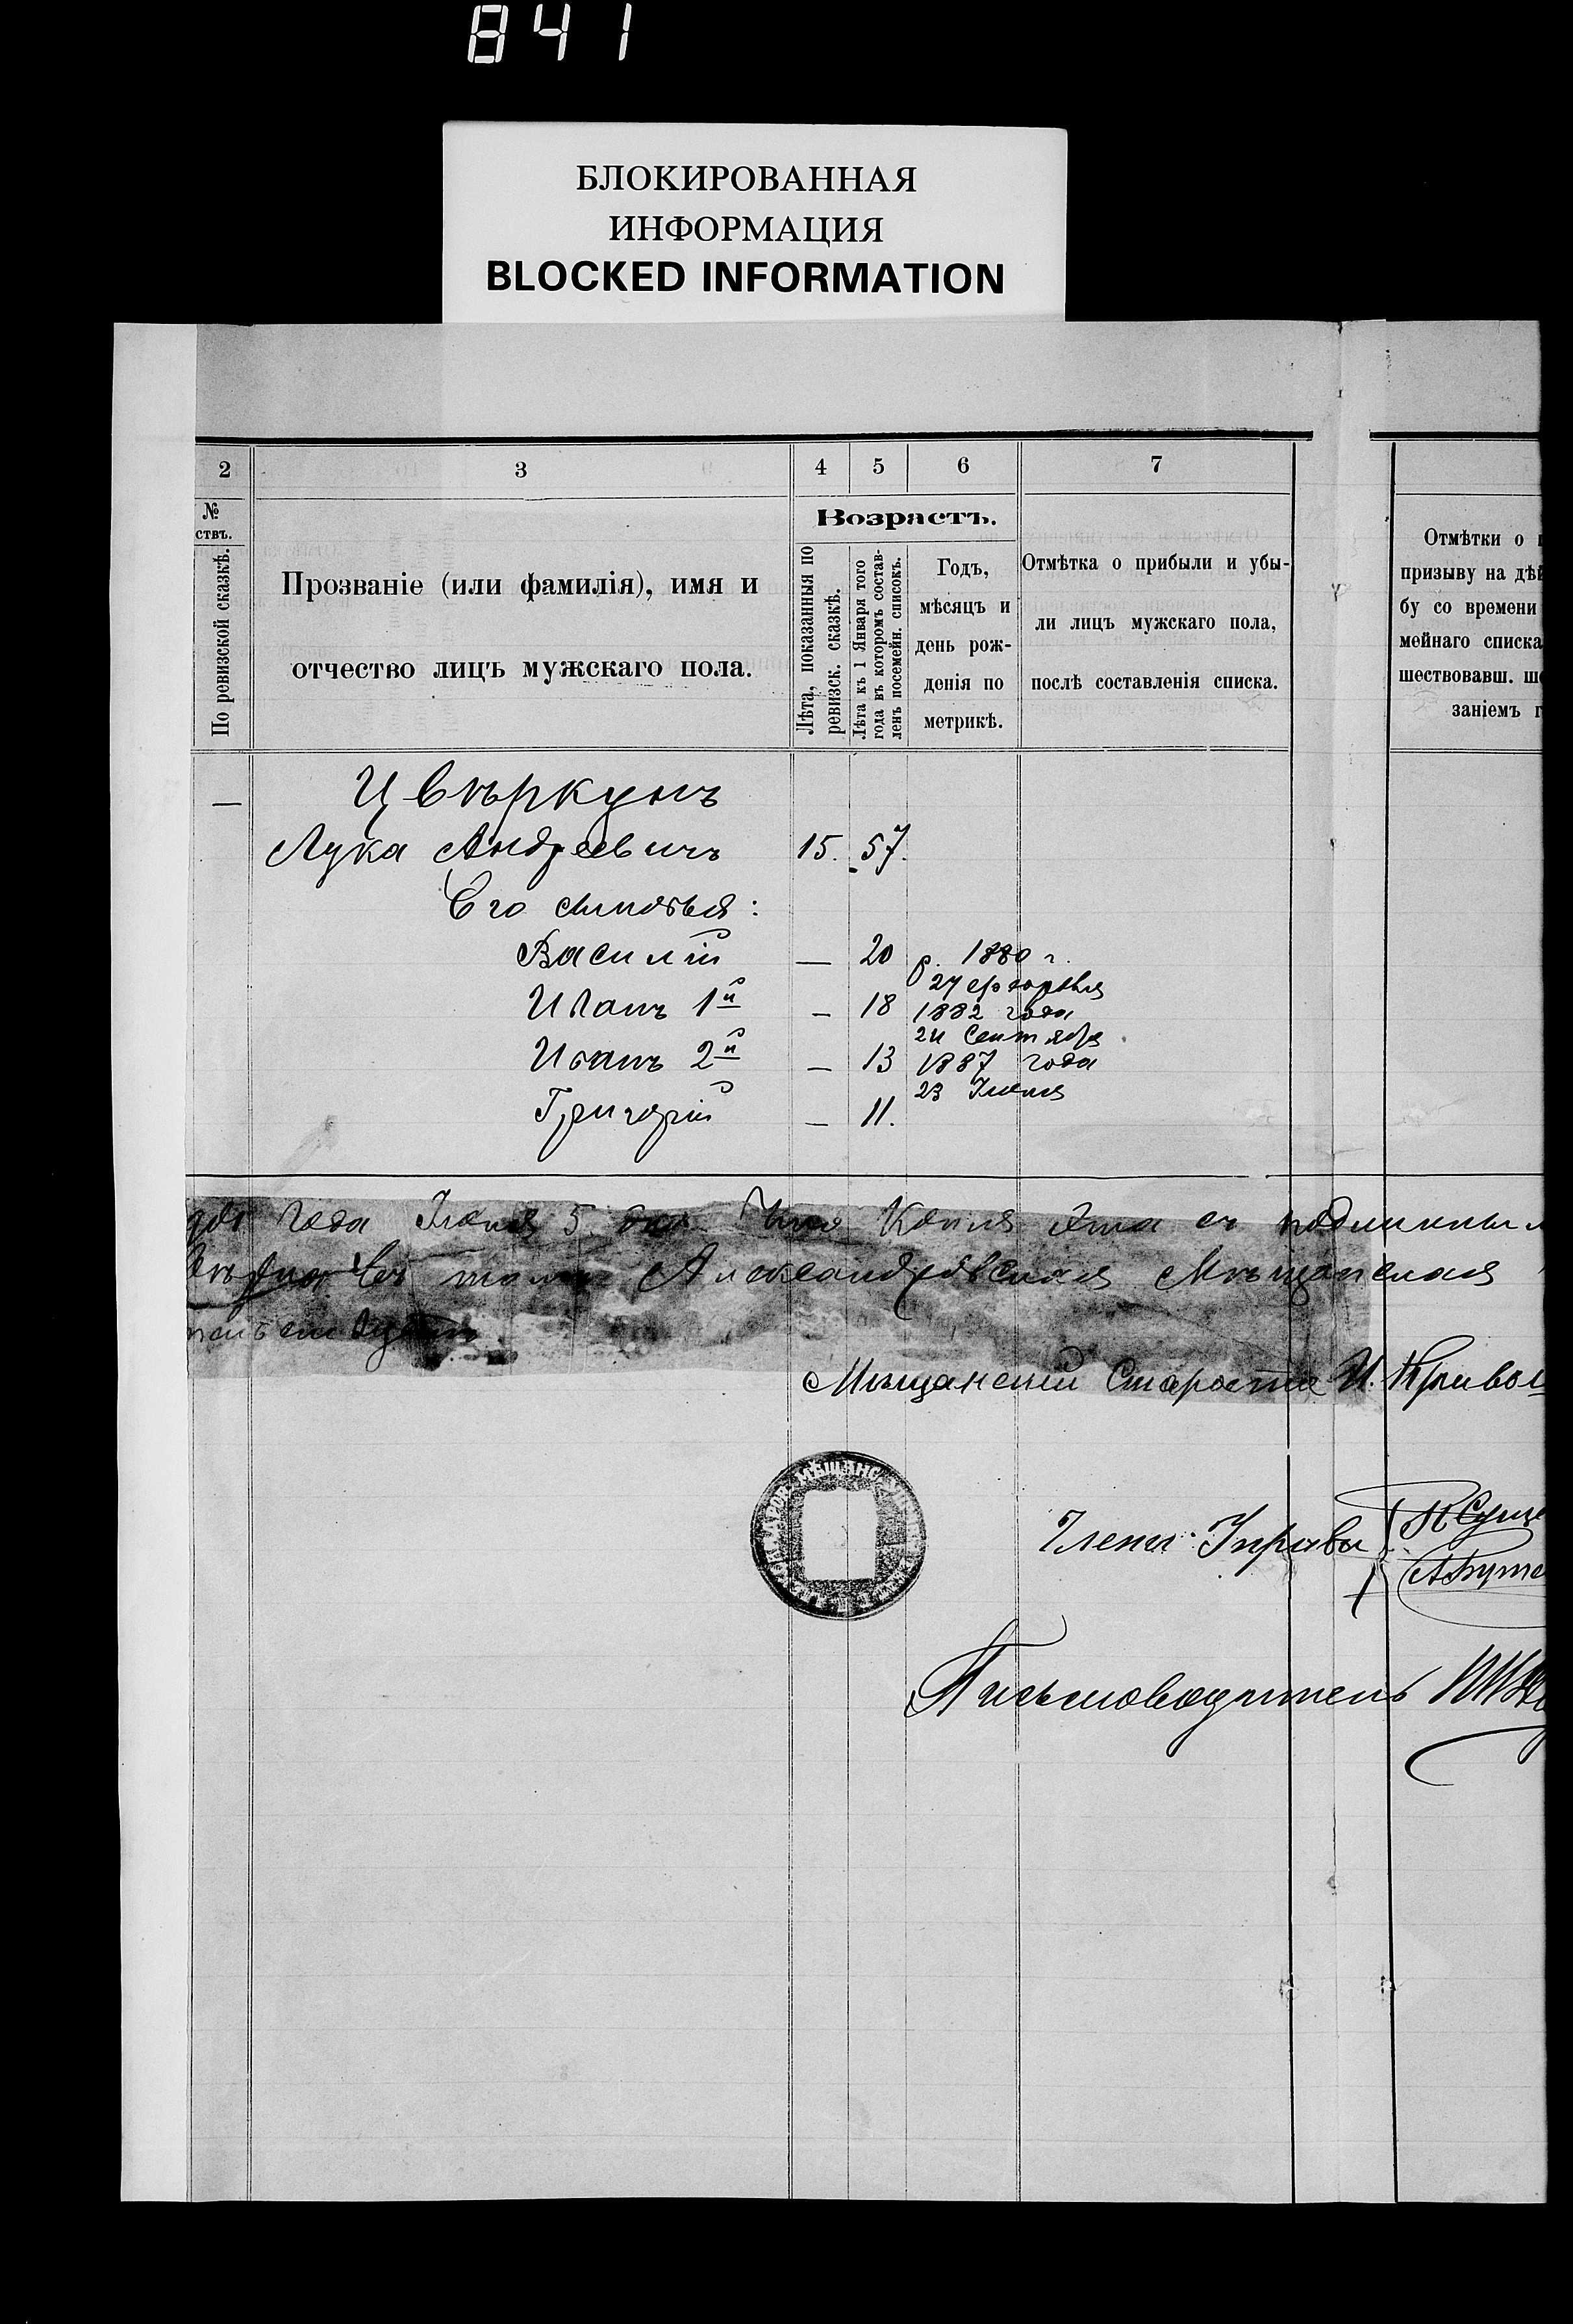 841
БЛОКИРОВАННАЯ
ИНФОРМАЦИЯ
BLOCKED INFORMATION
2
3
4
5
6
7
№
ствъ.
По ревизской сказкѣ.
Прозваніе (или фамилія), имя и
отчество лицъ мужскаго пола.
Возрастъ.
Лѣта, показанныя по
ревизск. сказкѣ.
Лѣта къ 1 Января того
года въ которомъ состав-
ленъ посемейн. списокъ.
Годъ,
мѣсяцъ и
день рож-
денія по
метрикѣ.
Отмѣтка о прибыли и убы-
ли лицъ мужскаго пола,
послѣ составленія списка.
Отмѣтки о
призыву на дѣй
бу со времени
мейнаго списка
шествовавш.
заніемъ г
— Цвѣркунъ
Лука Андреевичъ 15. 57.
Его сыновья:
Василій — 20 р. 1880 г.
27 февраля
Иванъ 1й — 18 1882 года
24 Сентября
Иванъ 2й — 13 1887 года
23 Іюня
Григорій — 11.
года Іюня 5 дня Что Копія эта съ подлинным
вѣрна Въ томъ Александровская Мѣщанская
Мѣщанскій Староста И. Кривош
МѢЩАНС
Члены Управы
Письмоводитель